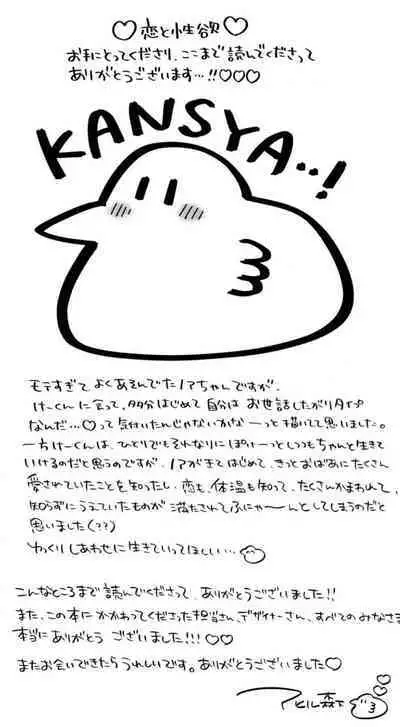 ♡恋と性欲♡
お手にとってくださり、ここまで読んでくださって
ありがとうございます…!!♡♡♡
KANSYA..!
モテすぎて よくあそんでた ノアちゃんですが、
けーくんに会って、多分はじめて 自分は お世話したがりタイプ
なんだ…♡って気付いたんじゃないかな―っと描いてて思いました。
一方けーくんは、ひとりでもそれなりに ぽけーっとしつつもちゃんと生きて
いけるのだと思うのですが、ノアがきてはじめて、きっとおばあにたくさん
愛されていたことを知ったし、恋も、体温も知って、たくさんかまわれて、
知らずにうえていたものが 満たされてふにゃ〜んとしてしまうのだと
思いました(??)
ゆっくりしあわせに生きていってほしい…
こんなところまで読んでくださって、ありがとうございました!!
また、この本に かかわってくださった担当さん、デザイナーさん、すべてのみなさま
本当に ありがとう ございました!!!♡♡
またお会いできたら うれしいです。ありがとうございました♡
アヒル森下